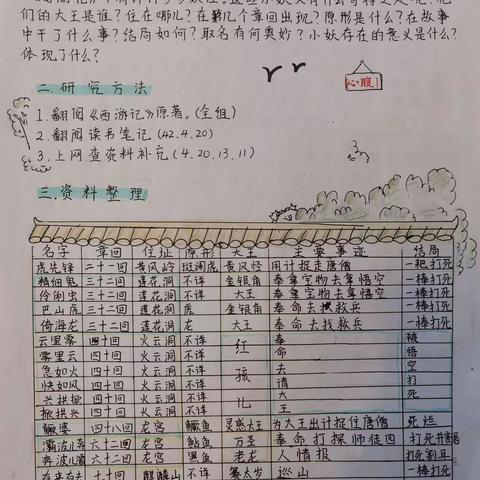 们的大王是谁？住在哪儿？在第几个章回出现？原形是什么？在故事
中干了什么事？结局如何？取名有何奥妙？小妖存在的意义是什么？
体现了什么？
心腹！
二.研究方法
1.翻阅《西游记》原著。(全组)
2.翻阅读书笔记(42.4.20)
3.上网查资料补充(4.20.13.11)
三.资料整理
名字 章回 住址 原形 大王 主要事迹 结局
虎先锋 二十一回 黄风岭 斑斓虎 黄风怪 用计捉走唐僧 一耙打死
精细鬼 三十二回 莲花洞 不详 金银角 奉拿宝物去拿悟空 一棒打死
伶俐虫 三十二回 莲花洞 不详 大王 奉拿宝物去拿悟空 一棒打死
巴山虎 三十二回 莲花洞 虎 金银角 奉命去找救兵 一棒打死
倚海龙 三十二回 莲花洞 龙 大王 奉命去找救兵 一棒打死
云里雾 四十回 火云洞 不详 红 奉 被
雾里云 四十回 火云洞 不详 命 悟
急如火 四十回 火云洞 不详 孩 去 空
快如风 四十回 火云洞 不详 请 打
兴烘掀 四十回 火云洞 不详 儿 大 死
掀烘兴 四十回 火云洞 不详 王
鳜婆 四十八回 龙宫 鳜鱼 灵感大王 为大王出计捉住唐僧 死烂
灞波儿奔 六十二回 龙宫 鲇鱼 万圣 奉命打探师徒四 打死
奔波儿灞 六十二回 龙宫 黑鱼 老龙 人情报 打死割耳
有来有去 七十回 麒麟山 不详 赛太岁 巡山 一棒打死